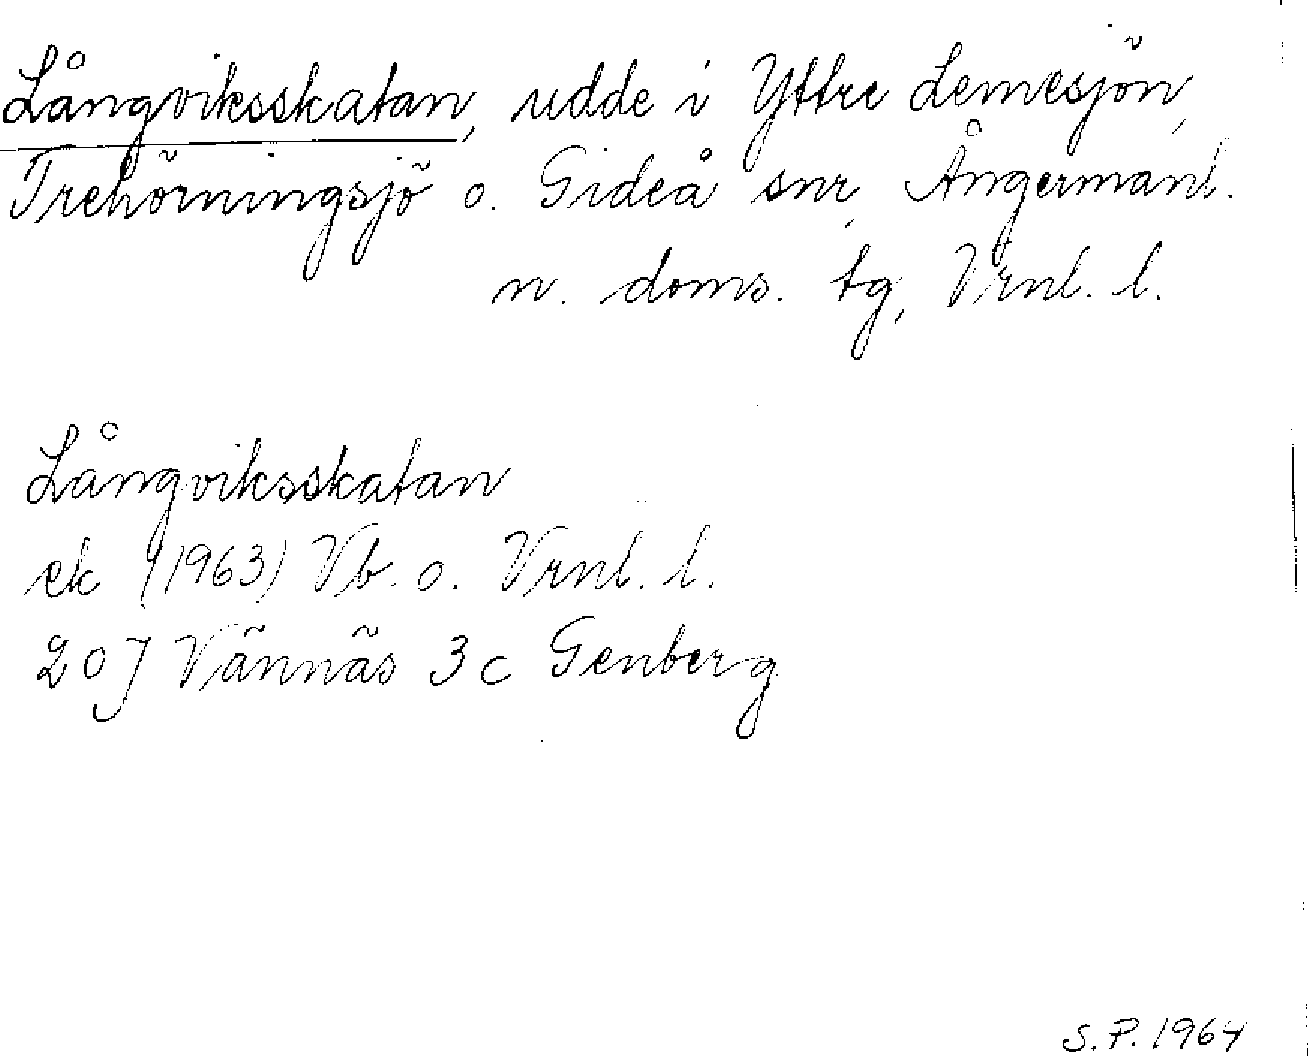 Långviksskatan, udde i Yttre Lemesjön,
Trehörningsjö o. Gideå snr, Ångermanl.
n. doms. tg, Vrnl. l.
Långviksskatan
ek (1963) Vb. o. Vrnl. l.
20J Vännäs 3c Genberg
S.P. 1964